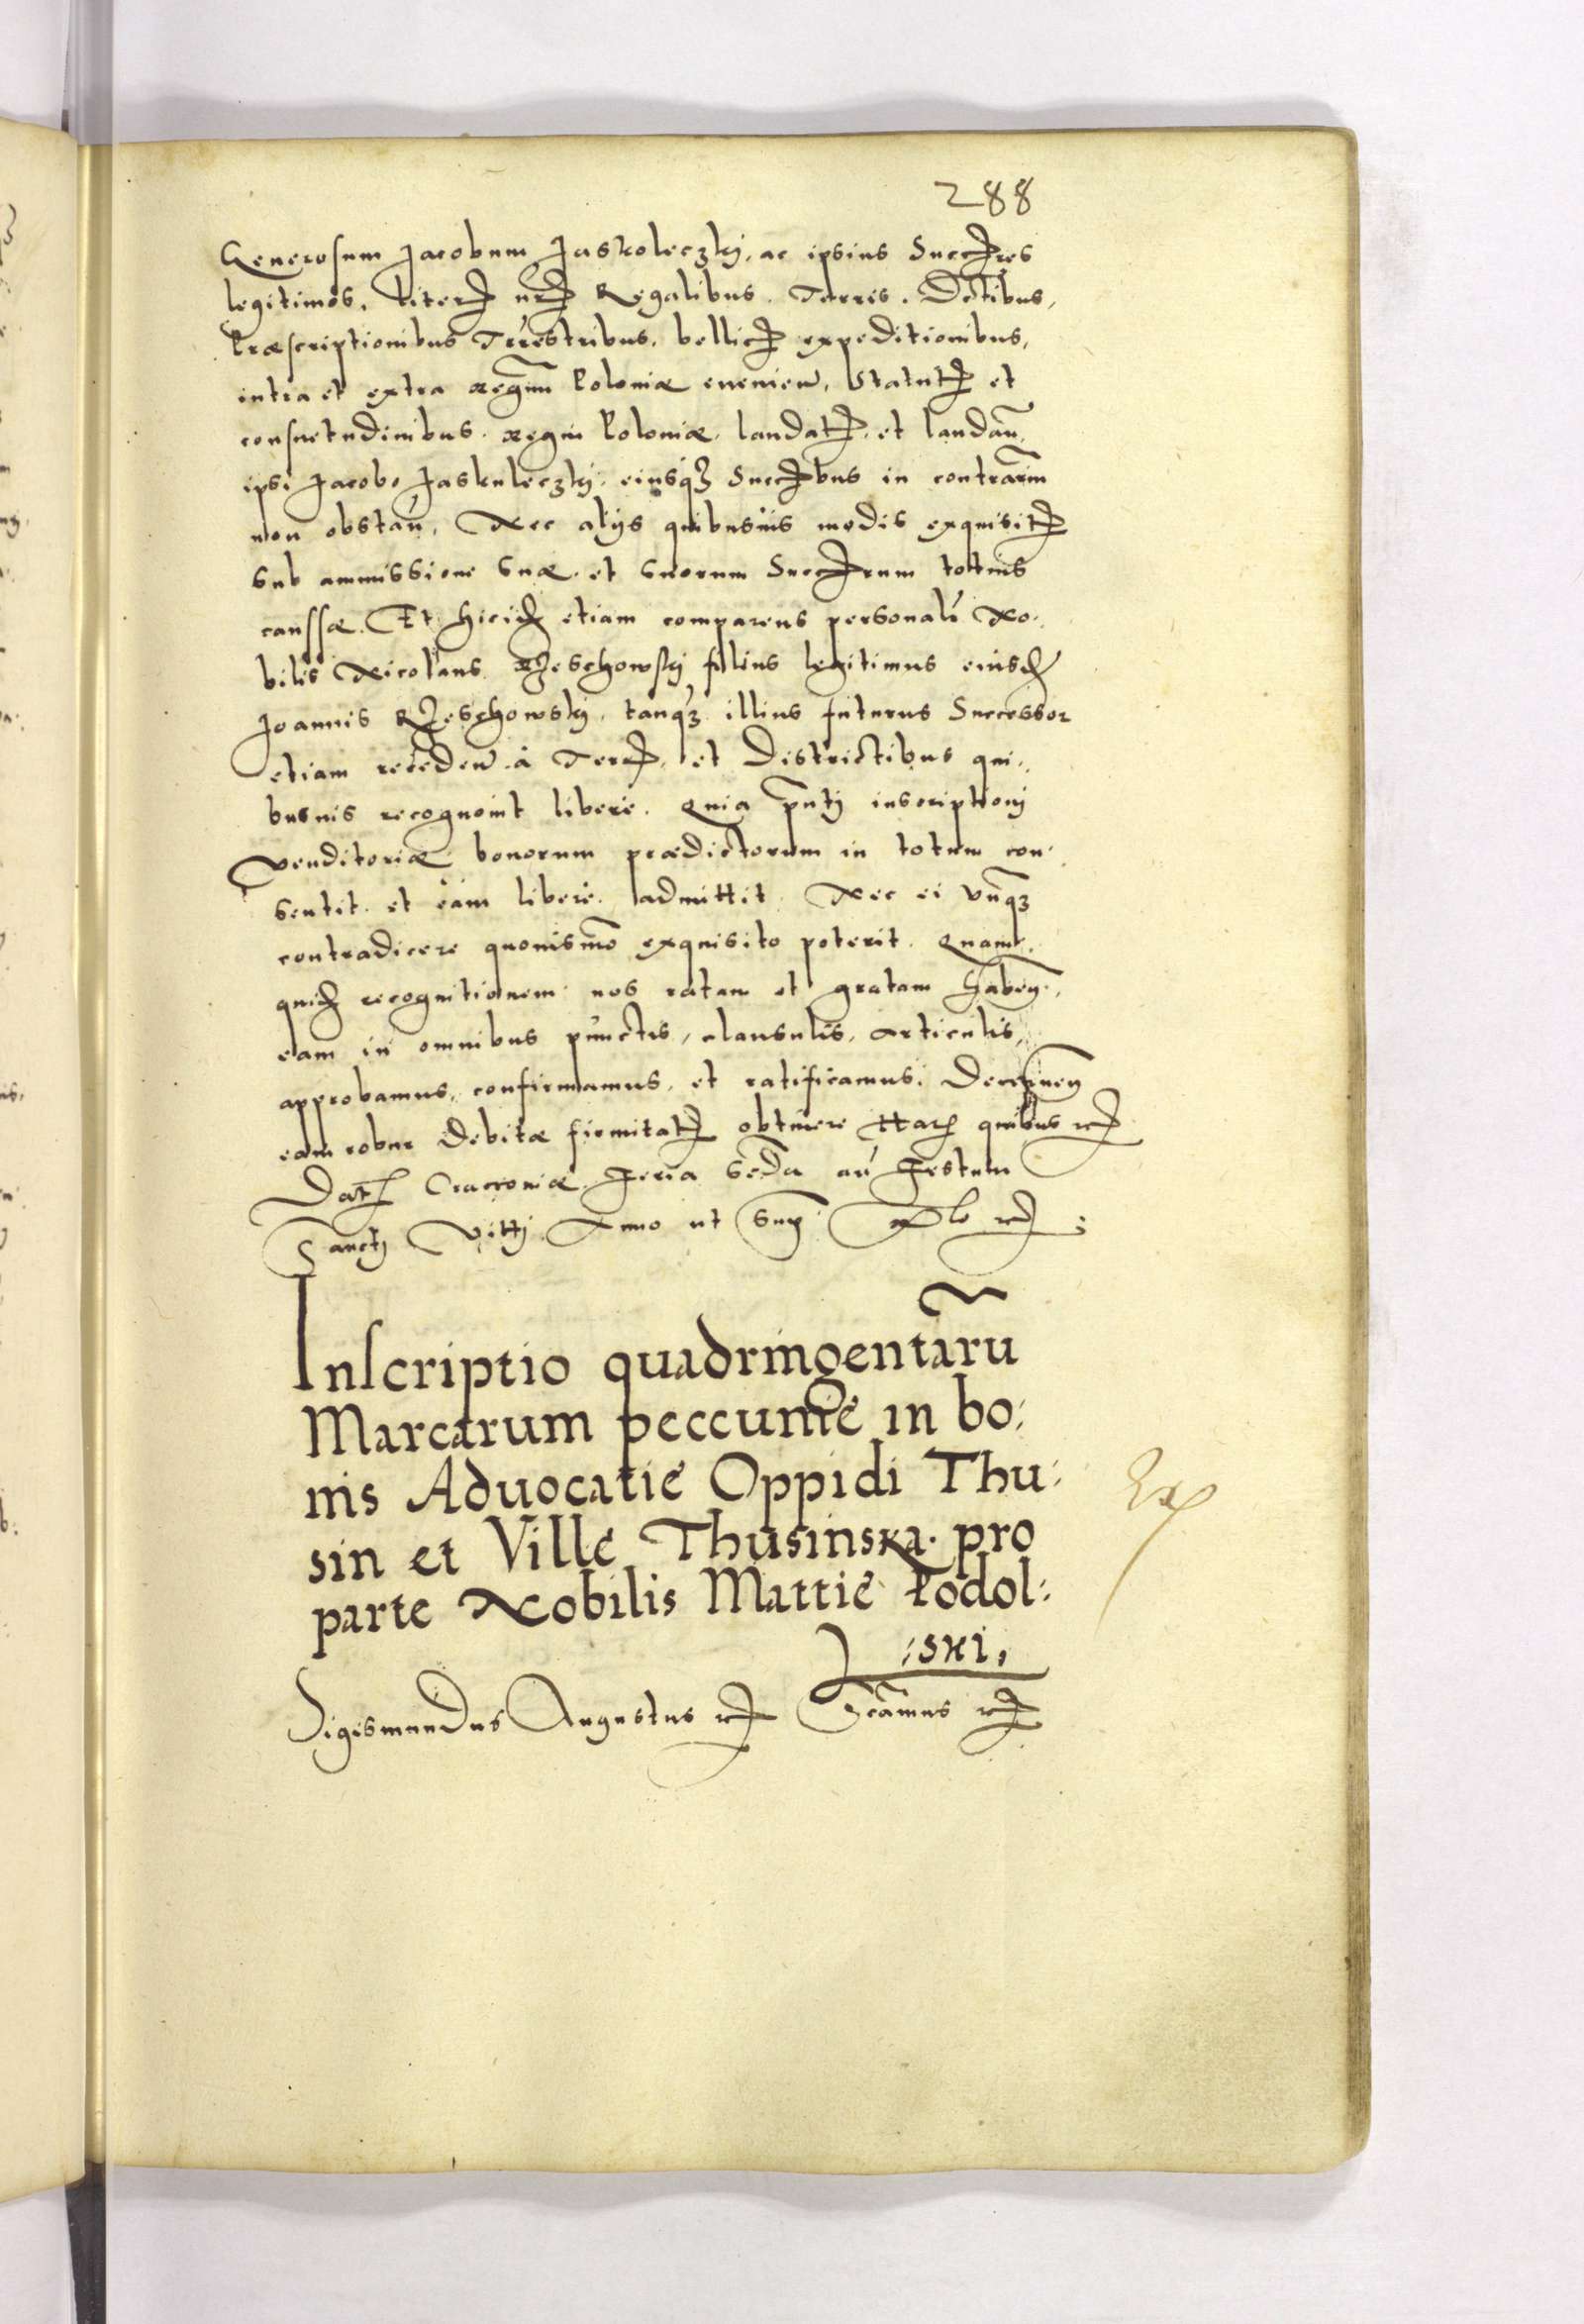 288
Generosum Jacobum Jaskoleczkj, ac ipsius Succꝭres
legitimos. literꝭ nr̃ꝭ Regalibus. Terris. Dctibus,
Præscriptionibus Tr̃restribus, bellicꝭ expeditionibus,
intra et extra regnũ Poloniæ evenien̄, Statutꝭ et
consuetudinibus. regni Poloniæ. laudatꝭ. et laudan̄,
ipsi Jacobo Jaskuleczkj. eiusq́ꝫ Succꝭbus in contrar̃m
non obstan̄, Nec alijs quibusuis modis exquisitꝭ
sub ammissione suæ. et suorum Succꝭrum totius
caussæ. Et hicid̃ etiam comparens personalr̃ No..
bilis Nicolaus Rzeschowskj filius legitimus eiusd̃
Joannis Rzeschowskj, tanq́ꝫ illius futurus Successor
etiam receden̄. à Terrꝭ, et Districtibus qui..
busuis recognouit liberè. Quia pñtj inscriptionj
venditoriæ bonorum prædictorum in totum con..
sentit. et eam liberè. admittit. Nec ei vnq̃ꝫ
contradicere quouismõ exquisito poterit. Quam..
quid̃ recognitionem nos ratam et gratam haben̄..,
eam in omnibus punctis, clausulis, articulis,
approbamus, confirmamus, et ratificamus. Decernen̄
eam robur debitæ firmitatꝭ obtinere Har̃ quibus rꝭ
Dat̃ Cracouiæ. Feria sẽda añ Festum
Sanctj Vittj Anno ut sup̃ rꝭ
Inscriptio quadringentarũ
Marcarum peccunie in bo:
nis Aduocatie Oppidi Thu:
sin et Ville Thusinska. pro
parte Nobilis Mattie Podol:
:ski,
Sigismundus Augustus rꝭ Sc̃amus rꝭ